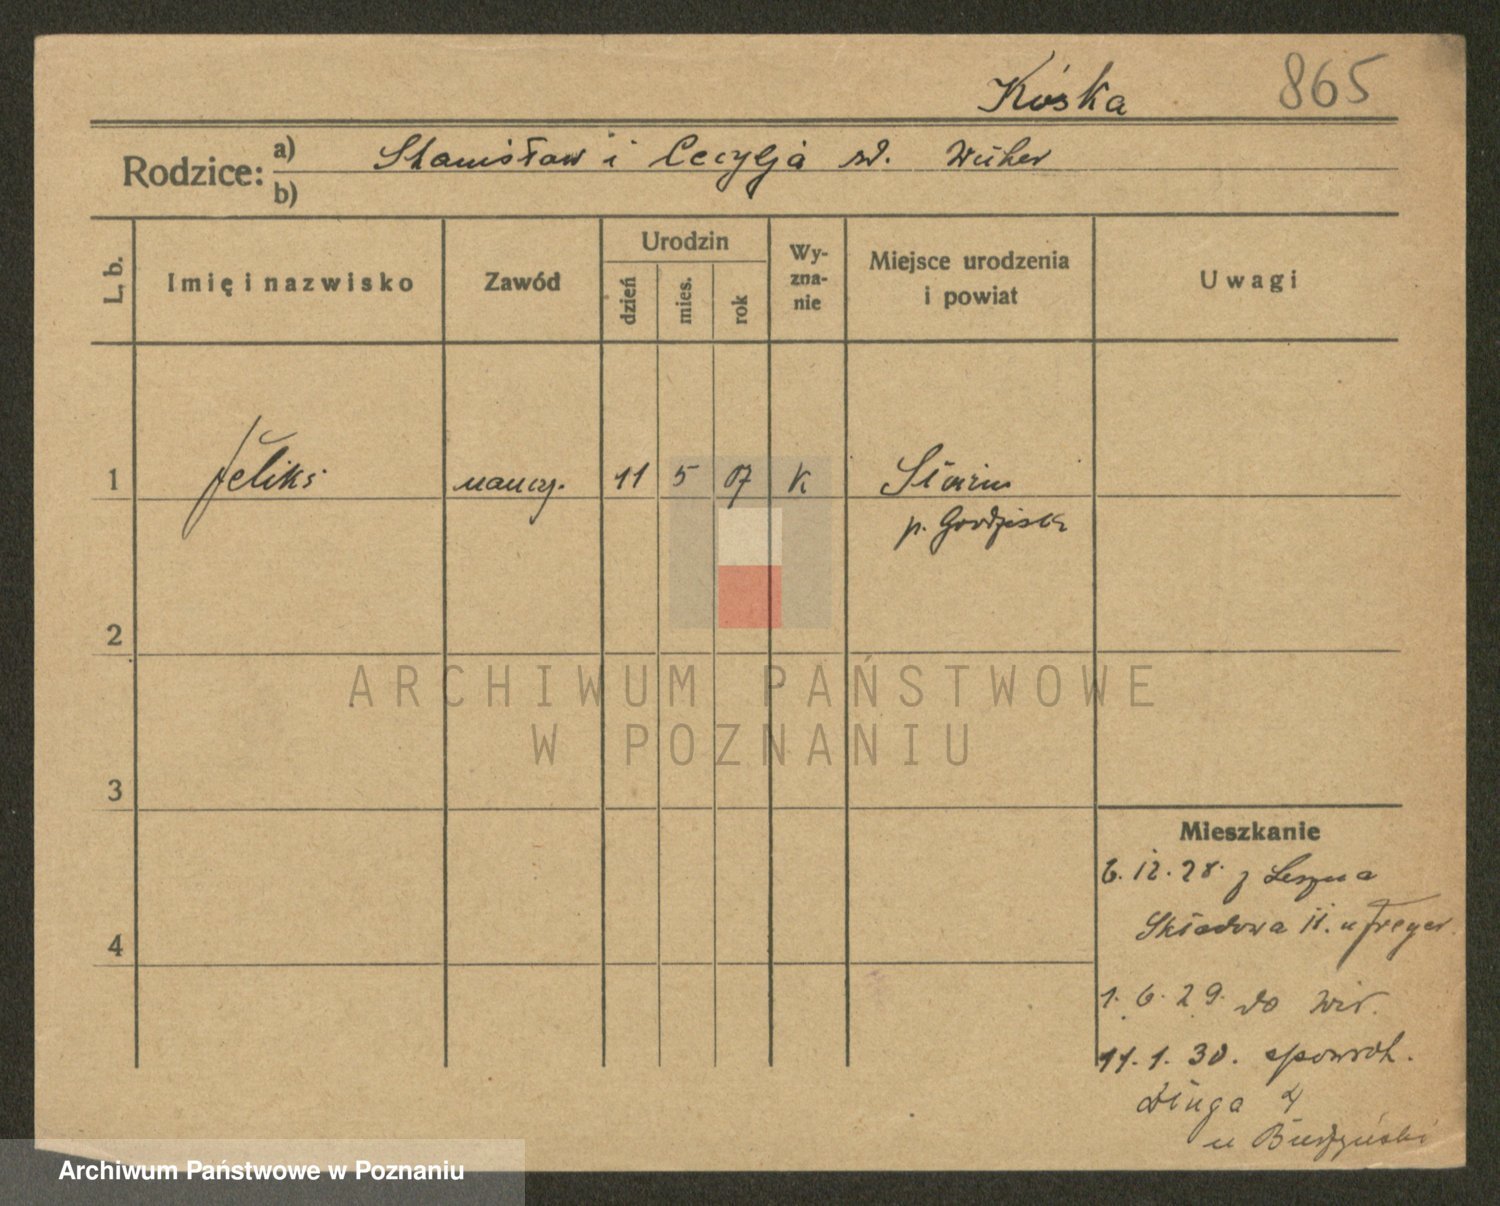 Kóska 865
Rodzice: a) Stanisław i Cecylja
b)
L. b.
Imię i nazwisko
Zawód
Urodzin
dzień
mies.
rok
Wy-
zna-
nie
Miejsce urodzenia
i powiat
Uwagi
1 Feliks naucz. 11 5 07 K
p. Grodzisk
2
3
4
Mieszkanie
6. 12. 28. z Leszna
Składowa 11. u Freyer
1. 6. 29. do
11. 1. 30. spowrot.
Długa 4
u Budzyński
ARCHIWUM PAŃSTWOWE
W POZNANIU
Archiwum Państwowe w Poznaniu